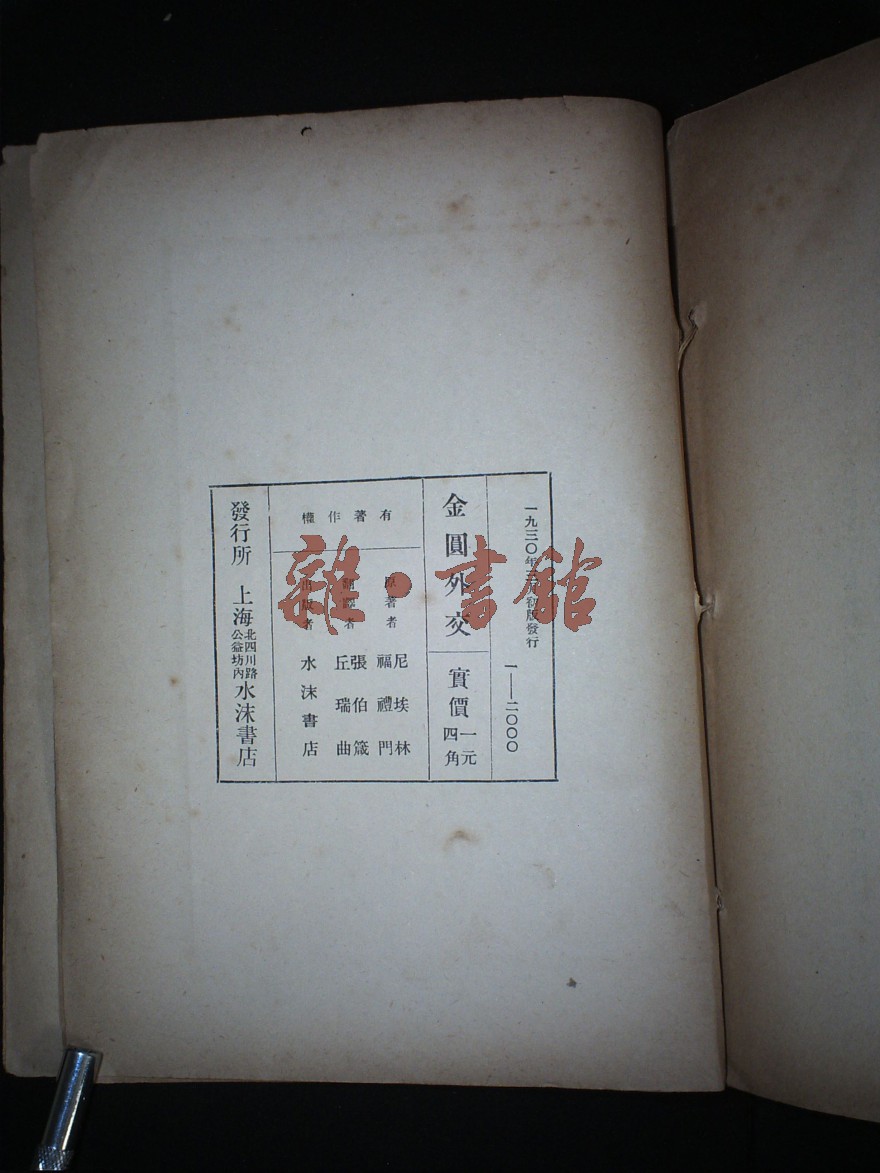 一九三〇年三月初版發行
一——二〇〇〇
金圓外交
實價一元四角
有著作權
原著者 尼埃林 福禮門
翻譯者 張伯箴 丘瑞曲
出版者 水沫書店
發行所 上海北四川路公益坊內水沫書店
雜·書館